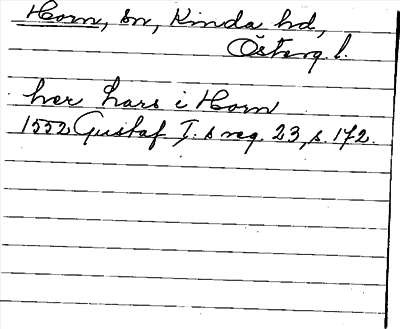 Horn, sn, Kinda hd,
Österg. l.
her Lars i Horn
1552 Gustaf I. s reg. 23, s. 172.